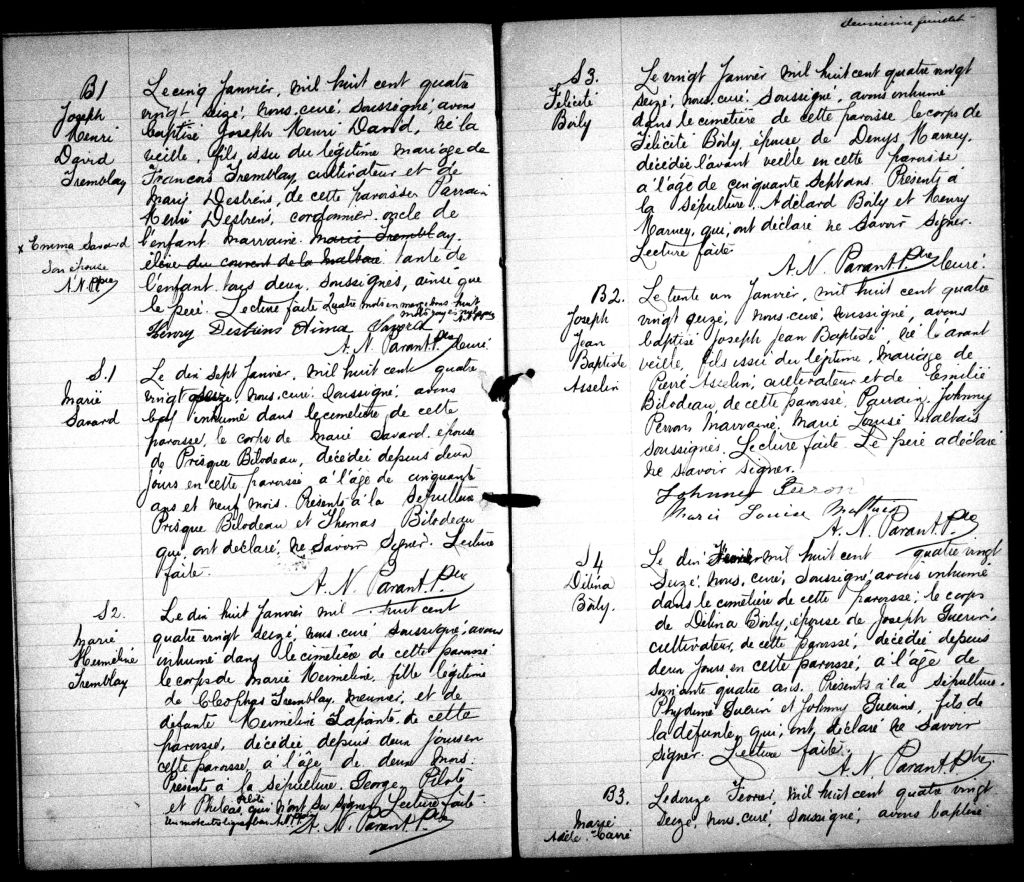 B1
Joseph
Henri
David
Tremblay
x Emma Savard
son épouse
A.N.P. ptre
Le cinq Janvier, mil huit cent quatre
vingt seize, nous, curé, soussigné, avons
baptisé Joseph Henri David, né la
veille, fils issu du légitime mariage de
Francois Tremblay, cultivateur et de
Marie Desbiens, de cette paroisse. Parrain
Henri Desbiens, cordonnier, oncle de
l'enfant marraine Marie Tremblay,
élève du couvent de la Malbaie tante de
l'enfant tous deux soussignés, ainsi que
le père. Lecture faite Quatre mots en marge bons huit
mots rayés nuls
Henry Desbiens Aima Savard
A.N. Parant Ptre Curé
S.1
Marie
Savard
Le dix sept Janvier, mil huit cent quatre
vingt seize, nous, curé, soussigné, avons
inhumé dans le cimetière de cette
paroisse, le corps de Marie Savard, épouse
de Prisque Bilodeau, décédée depuis deux
jours en cette paroisse à l'âge de cinquante
ans et neuf mois. Présents à la sépulture
Prisque Bilodeau et Thomas Bilodeau
qui ont déclaré, ne savoir signer. Lecture
faite.
A.N. Parant Ptre
S2.
Marie
Herméline
Tremblay
Le dix huit Janvier mil huit cent
quatre vingt seize, nous, curé soussigné, avons
inhumé dans le cimetière de cette paroisse
le corps de Marie Herméline, fille légitime
de Cléophas Tremblay, meunier, et de
défunte Herméline Lapante, de cette
paroisse, décédée depuis deux jours en
cette paroisse, à l'âge de deux mois.
Présents à la sépulture, George Pilote
et Philéas Pilote, qui n'ont su signer. Lecture faite
Un mot entre lignes bon A.N.P. Ptre
A.N. Parant Ptre
deuxième feuillet
S3.
Félicité
Boily
Le vingt Janvier mil huit cent quatre vingt
seize, nous, curé, soussigné, avons inhumé
dans le cimetière de cette paroisse le corps de
Félicité Boily, épouse de Denys Harney,
décédée l'avant veille en cette paroisse
à l'âge de cinquante sept ans. Présents à
la sépulture, Adélard Boily et Henry
Harney, qui, ont déclaré ne savoir signer.
Lecture faite
A.N. Parant Ptre Curé.
B2.
Joseph
Jean
Baptiste
Asselin
Le trente un Janvier, mil huit cent quatre
vingt seize, nous, curé, soussigné, avons
baptisé Joseph Jean Baptiste né l'avant
veille, fils issu du légitime mariage de
Pierre Asselin, cultivateur et de Emilie
Bilodeau, de cette paroisse. Parrain, Johnny
Perron Marraine, Marie Louise Maltais
soussignés. Lecture faite. Le père a déclaré
ne savoir signer.
Johnny Perron
Marie Louise
A.N. Parant Ptre
S4
Délina
Boily.
Le dix Fevrier mil huit cent quatre vingt
seize, nous, curé, soussigné, avons inhumé
dans le cimetière de cette paroisse, le corps
de Délina Boily, épouse de Joseph Guerin
cultivateur, de cette paroisse, décédée depuis
deux jours en cette paroisse, à l'âge de
soixante quatre ans. Présents à la sépulture,
Phydime Guérin et Johnny Guerins, fils de
la défunte, qui, ont, déclaré ne savoir
signer. Lecture faite.
A.N. Parant Ptre
B3.
Marie
Adèle
Le douze Fevrier, mil huit cent quatre vingt
seize, nous, curé, soussigné, avons baptisé